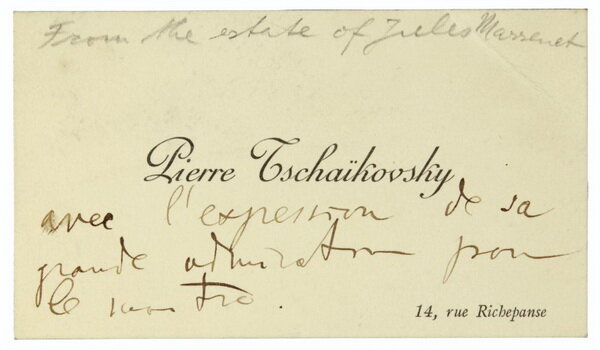 From the estate of Jules Massenet
Pierre Tschaïkovsky
avec l'expression de sa
grande admiration pour
le maître.
14, rue Richepanse